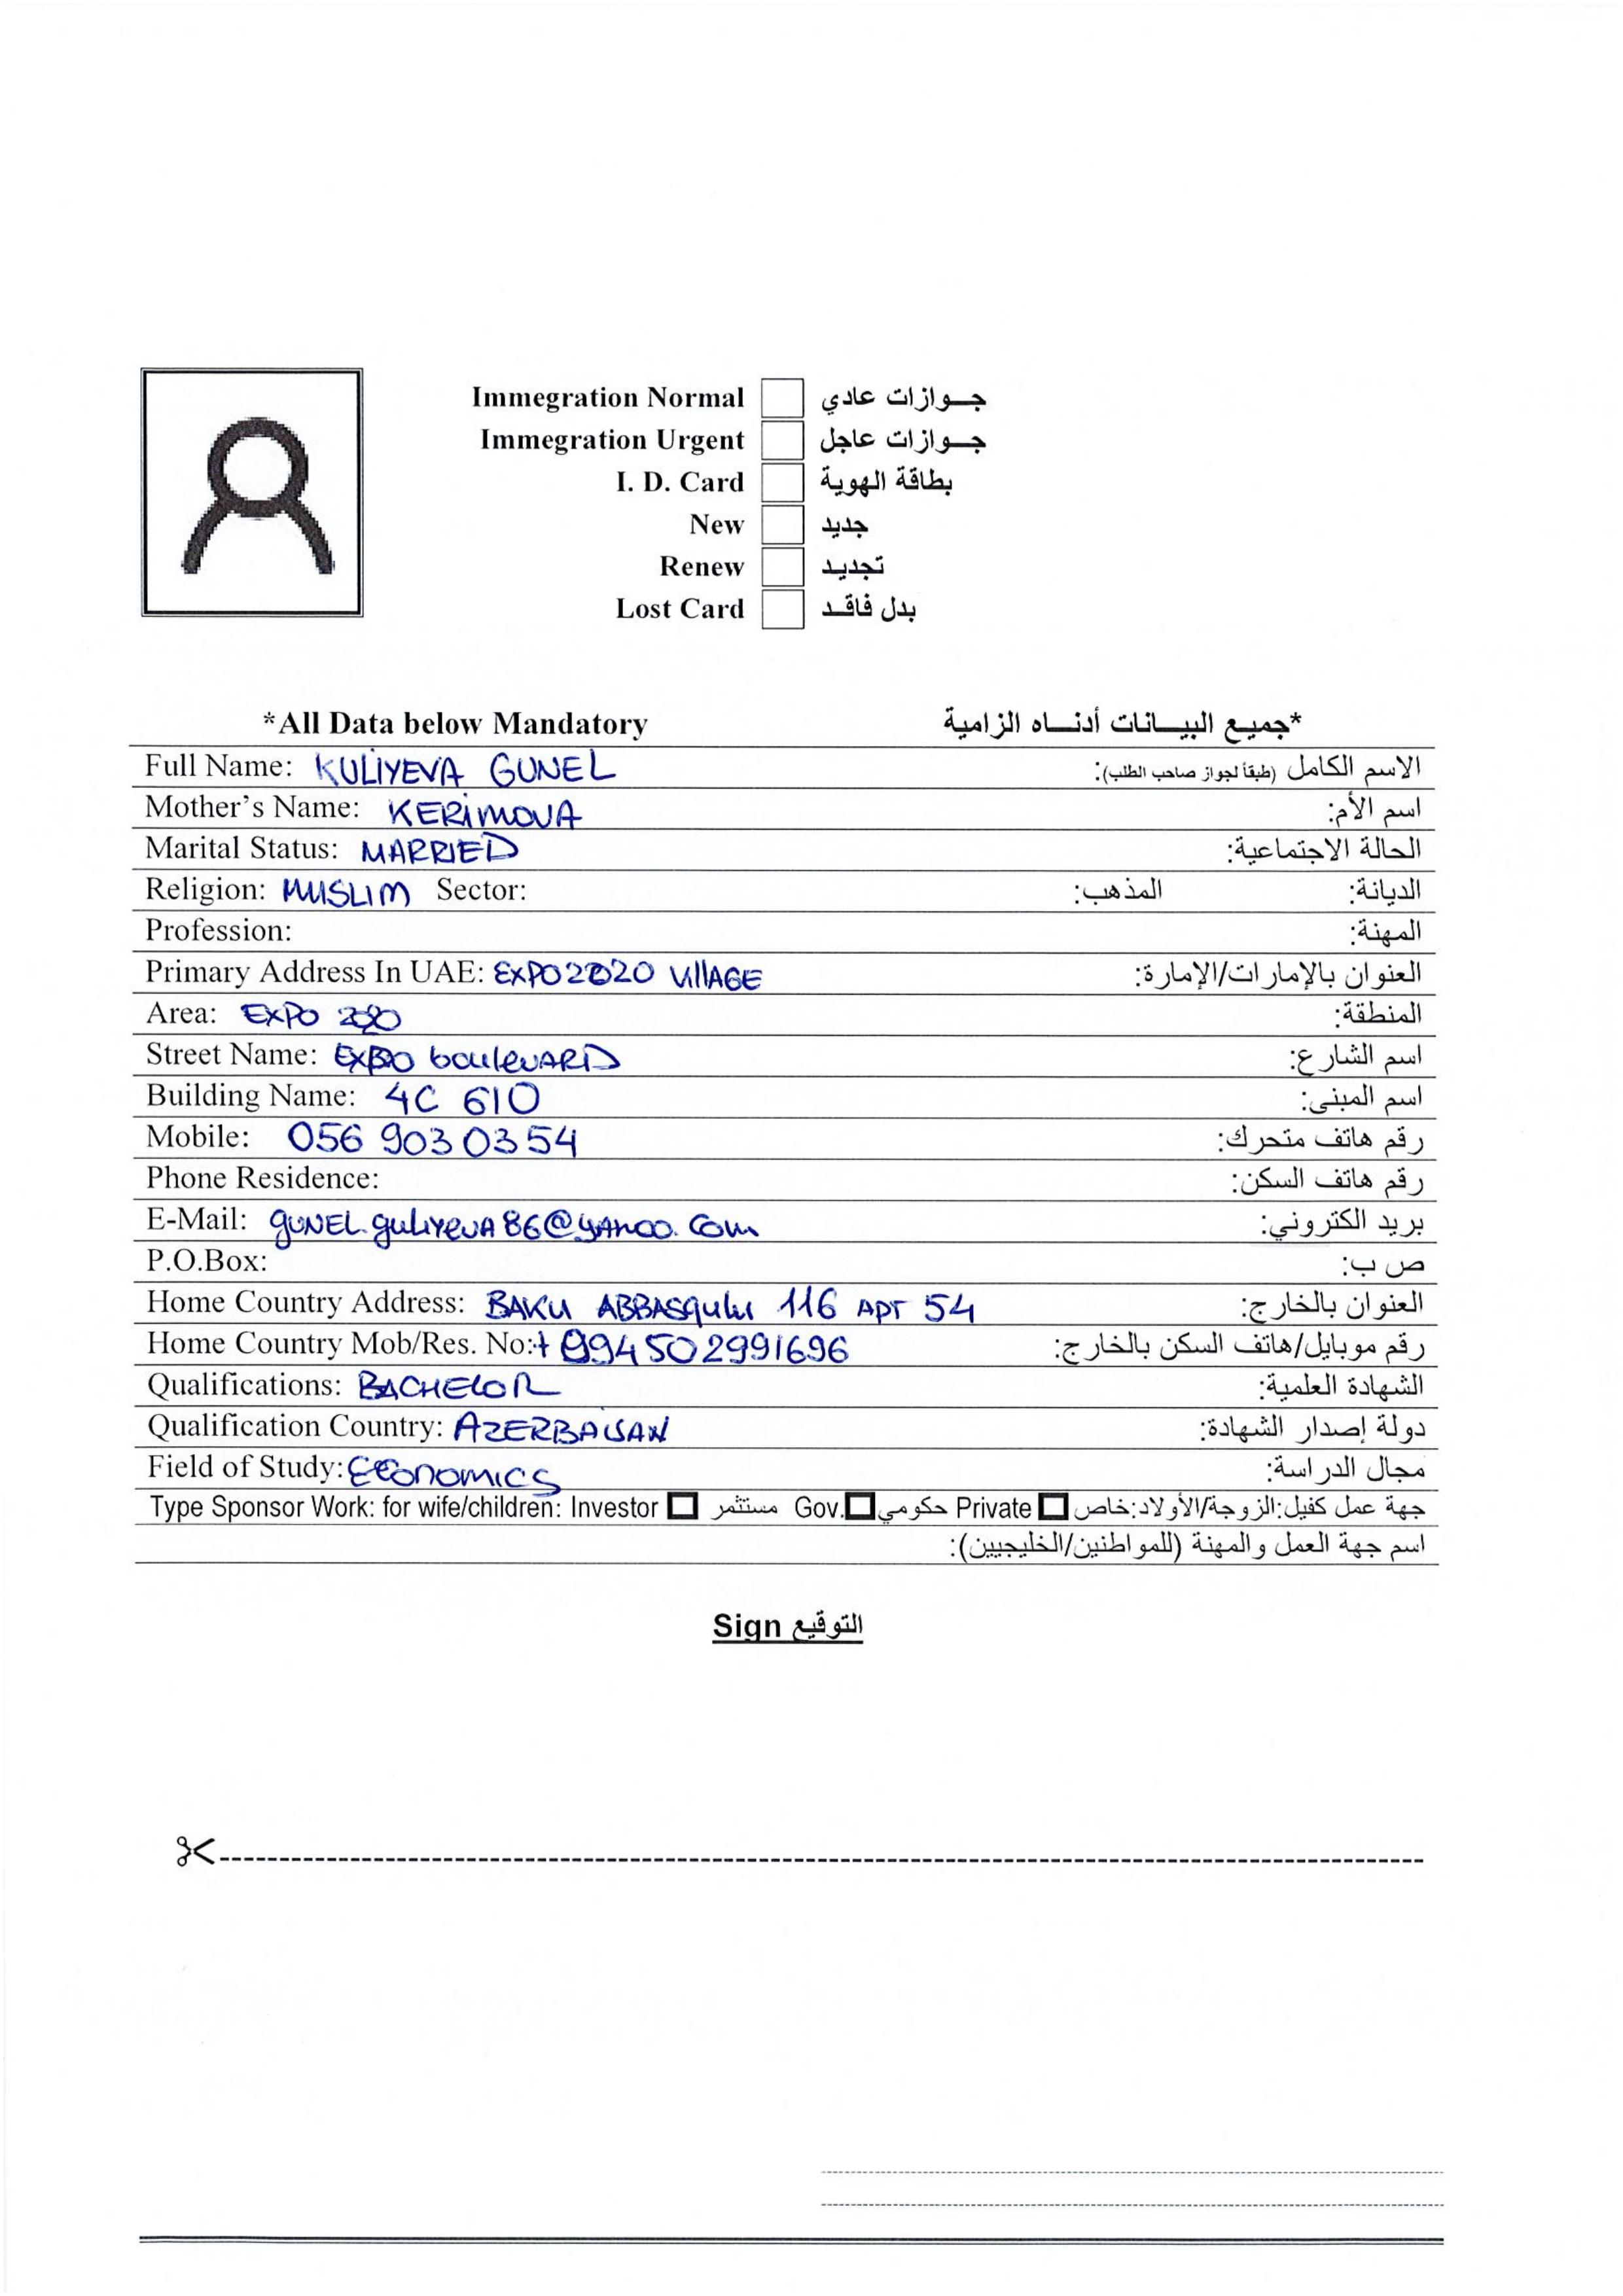 Immegration Normal جـوازات عادي
Immegration Urgent جـوازات عاجل
I. D. Card بطاقة الهوية
New جديد
Renew تجديد
Lost Card بدل فاقد
*All Data below Mandatory *جميع البيانات أدناه الزامية
Full Name: KULIYEVA GUNEL الاسم الكامل (طبقاً لجواز صاحب الطلب):
Mother's Name: KERIMOVA اسم الأم:
Marital Status: MARRIED الحالة الاجتماعية:
Religion: MUSLIM Sector: المذهب: الديانة:
Profession: المهنة:
Primary Address In UAE: EXPO2020 VillAGE العنوان بالإمارات/الإمارة:
Area: EXPO 2020 المنطقة:
Street Name: EXPO bouleVARD اسم الشارع:
Building Name: 4C 610 اسم المبنى:
Mobile: 056 903 0354 رقم هاتف متحرك:
Phone Residence: رقم هاتف السكن:
E-Mail: gUNEL.guliyeva86@yahoo.com بريد الكتروني:
P.O.Box: ص ب:
Home Country Address: BAKU ABBASqulu 116 APT 54 العنوان بالخارج:
Home Country Mob/Res. No:+ 994502991696 رقم موبايل/هاتف السكن بالخارج:
Qualifications: BACHELOR الشهادة العلمية:
Qualification Country: AZERBAIJAN دولة إصدار الشهادة:
Field of Study: ECONOMICS مجال الدراسة:
Type Sponsor Work: for wife/children: Investor مستثمر Gov. حكومي Private خاص جهة عمل كفيل:الزوجة/الأولاد:
اسم جهة العمل والمهنة (للمواطنين/الخليجيين):
Sign التوقيع